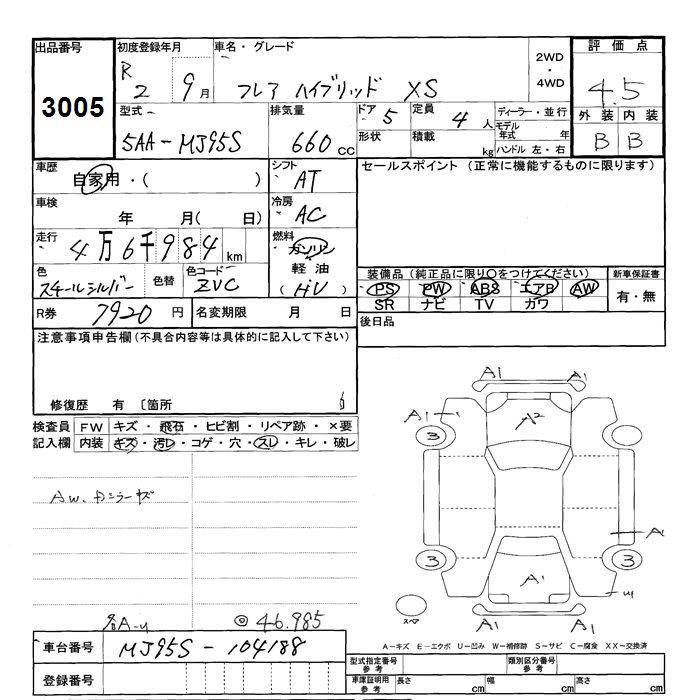 出品番号 初度登録年月 車名・グレード 2WD・4WD 評価点
3005 R2 9月 フレア ハイブリッド XS 4.5
型式 排気量 ドア 定員 ディーラー・並行 外装 内装
5AA-MJ95S 660cc 5 4人 モデル年式 年 B B
形状 積載 kg ハンドル 左・右
車歴 シフト セールスポイント (正常に機能するものに限ります)
自家用・( ) AT
車検 冷房
年 月( 日) AC
走行 燃料
4万6千984km ガソリン
色 色替 色コード 軽油 装備品(純正品に限り○をつけてください) 新車保証書
スチールシルバー ZVC (HV) PS PW ABS エアB AW 有・無
SR ナビ TV カワ
R券 7920円 名変期限 月 日 後日品
注意事項申告欄(不具合内容等は具体的に記入して下さい)
修復歴 有 〔箇所
検査員 FW キズ・飛石・ヒビ割・リペア跡・×要
記入欄 内装 キズ・汚レ・コゲ・穴・スレ・キレ・破レ
A1 A1
A1 A2
3
AW、
A1
3 3
A1
A1 A1
スペア
各A-U ◎46.985
A-キズ E-エクボ U-凹み W-補修跡 S-サビ C-腐食 XX-交換済
車台番号 MJ95S-104188
型式指定番号 参考 類別区分番号 参考
登録番号 車庫証明用 参考 長さ cm 幅 cm 高さ cm